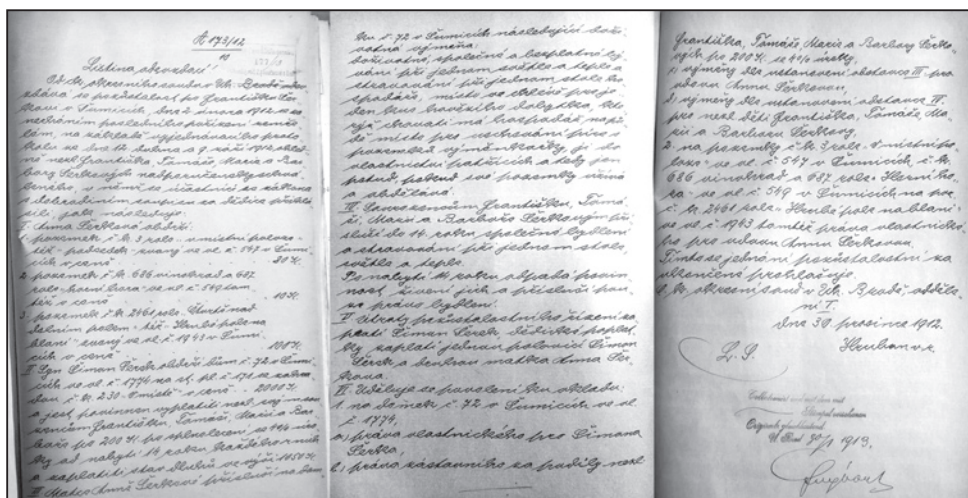 A 173/12
Listina odevzdací!
Od c.k. okresního soudu v Uh. Brodě
odevzdává se pozůstalost po Františku Šer-
kovi v Šumicích, dne 2 února 1912 bez
zanechání posledního pořízení zemře-
lém, na základě vyjednávacího proto-
kolu ze dne 12. dubna a 9. září 1912 ohled-
ně nezl. Františka, Tomáše, Marie a Bar-
bory Šerkových nadporučensky schvá-
leného, v němž se účastníci ze zákona
s dobrodiním soupisu za dědice přihlá-
sili, jak následuje:
I. Anna Šerková obdrží:
1. pozemek č. k. 3 role v místní poloze
- téř - zvaný ve vl. č. 547 v Šumi-
cích v ceně 20 K.
2. pozemek č. k. 686 vinohrad a 687
role ve vl. č. 549 tam-
též v ceně 10 K.
3. pozemek č. k. 2461 role
polem - též - Hrubé pole na
blaní - zvaný ve vl. č. 1943 v Šumi-
cích v ceně 100 K.
II. Syn Šimon Šerek obdrží dům č. 72 v Šumi-
cích ve vl. č. 1774 na st. pl. č. 171 se zahra-
dou č. k. 230 v místě v ceně 2000 K
a jest povinen vyplatiti nezl.
Františku, Tomáši, Marii a Bar-
boře po 200 K po zplnoletení se 4% úro-
ky od nabytí 14 roku každého z nich
a zaplatiti stav dluhů ve výši 1050 K
III. Matce Anně Šerkové přísluší na dom-
ku č. 72 v Šumicích následující doži-
votná výměna:
doživotné, společné a bezplatné bý-
vání při jednom světle a teple
a stravování při jednom stole ho-
spodáře, místo ve chlévě pro je-
den kus hovězího dobytka, kte-
rýž chovati má hospodář napo-
řád v tuto pro uschování píce s
pozemků výměnkářky, jí do
vlastnictví patřících a tedy jen
potud, pokud své pozemky sama
obdělává.
IV. Sourozencům Františku, Tomá-
ši, Marii a Barboře Šerkovým pří-
sluší do 14. roku společné bydlení
a stravování při jednom stole,
světle a teple.
Po nabytí 14 roku odpadá povin-
nost, živení jich a přísluší pou-
ze právo bydlení.
V. Útraty pozůstalostního řízení za-
platí Šimon Šerek, dědické poplat-
ky zaplatí jednou polovicí Šimon
Šerek a druhou matka Anna Šer-
ková.
VI. Uděluje se povolení ku vkladu:
1. na domek č. 72 v Šumicích ve vl.
č. 1774,
a.) práva vlastnického pro Šimona
Šerka,
b.) práva zástavního za podíly nezl.
Františka, Tomáše, Marie a Barbory Šerko-
vých po 200 K se 4% úroky,
c.) výměny dle ustanovení odstavce III pro
vdovu Annu Šerkovou,
d.) výměny dle ustanovení odstavce IV.
pro nezl. děti Františka, Tomáše, Ma-
rii a Barboru Šerkovy,
2. na pozemky č. k. 3 role v místní
poloze ve vl. č. 547 v Šumicích, č. k.
686 vinohrad a 687 role
ve vl. č. 549 v Šumicích na poz.
č. k. 2461 role Hrubé pole na blaní
ve vl. č. 1943 tamtéž práva vlastnické-
ho pro vdovu Annu Šerkovou.
Tímto se jednání pozůstalostní za
ukončené prohlašuje.
C. k. okresní soud v Uh. Brodě, odděle-
ní I.
Dne 30. prosince 1912.
L. S.
Stempel versehenen
Originale gleichlautend
U. Brod 30/1 1913.